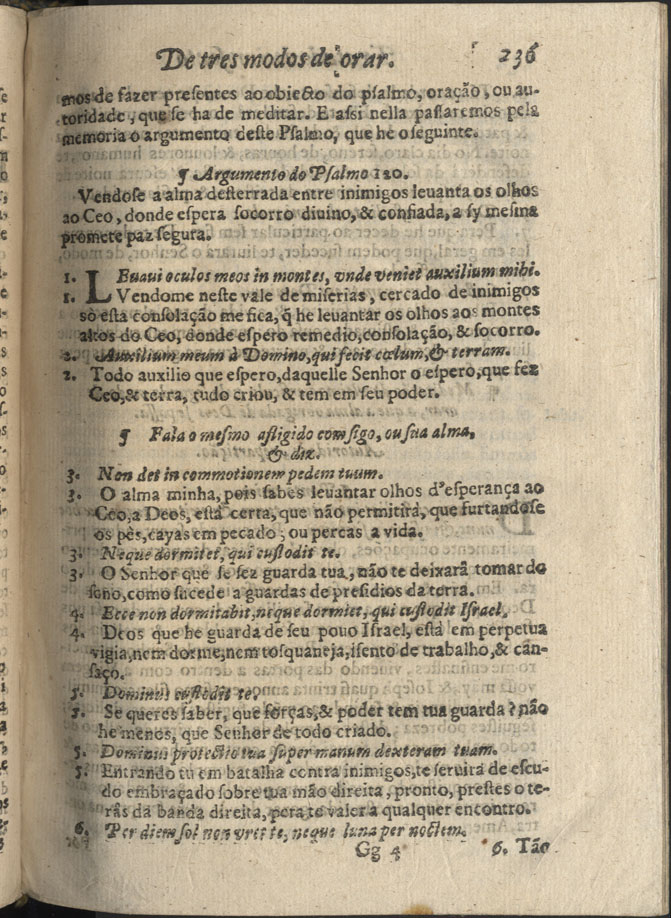 De tres modos de orar. 236
mos de fazer presentes ao obiecto do psalmo, oração, ou au-
toridade, que se ha de meditar. E assi nella passaremos pela
memoria o argumento deste Psalmo, que he o seguinte.
¶ Argumento do Psalmo 120.
Vendose a alma desterrada entre inimigos leuanta os olhos
ao Ceo, donde espera socorro diuino, & confiada, a sy mesma
promete paz segura.
1. LEuaui oculos meos in montes, vnde veniet auxilium mihi.
1. Vendome neste vale de miserias, cercado de inimigos
só esta consolação me fica, q̃ he leuantar os olhos aos montes
altos do Ceo, donde espero remedio, consolação, & socorro.
2. Auxilium meum à Domino, qui fecit cœlum, & terram.
2. Todo auxilio que espero, daquelle Senhor o espero, que fez
Ceo, & terra, tudo criou, & tem em seu poder.
¶ Fala o mesmo afligido comsigo, ou sua alma,
& diz.
3. Non det in commotionem pedem tuum.
3. O alma minha, pois sabes leuantar olhos d'esperança ao
Ceo, a Deos, està certa, que não permitirà, que furtandose
os pès, cayas em pecado, ou percas a vida.
3. Neque dormitet, qui custodit te.
3. O Senhor que se fez guarda tua, não te deixarà tomar do
sono, como sucede a guardas de presidios da terra.
4. Ecce non dormitabit, neque dormiet, qui custodit Israel.
4. Deos que he guarda de seu pouo Israel, està em perpetua
vigia, nem dorme, nem tosquaneja, isento de trabalho, & can-
saço.
5. Dominus custodit te.
5. Se queres saber, que forças, & poder tem tua guarda? não
he menos, que Senhor de todo criado.
5. Dominus protectio tua super manum dexteram tuam.
5. Entrando tu em batalha contra inimigos, te seruirà de escu-
do embraçado sobre tua mão direita, pronto, prestes o te-
ràs da banda direita, pera te valer a qualquer encontro.
6. Per diem sol non vret te, neque luna per noctem.
Gg 4 6. Tão